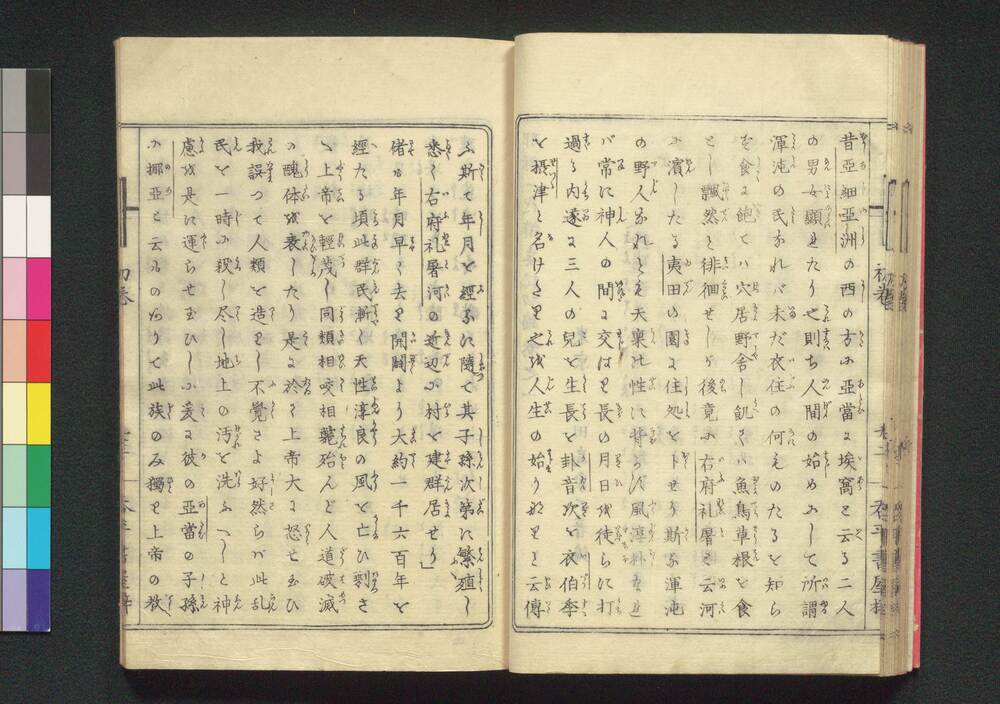 昔亞細亞洲の西の方に亞當と埃窩と云る二人
の男女顯れたり也則ち人間の始めにして所謂
渾沌の民なれバ未だ衣住の何ものたるを知ら
を食に飽てハ穴居野舍し飢てハ魚鳥草根を食
とし飄然と徘徊せしが後竟に右府礼屠と云河
に濱したる夷田の園に住処を卜せり斯る渾沌
の野人なれども天稟の性に背かず風淳朴なれ
バ常に神人の間に交はり長の月日を徒らに打
過る内遂に三人の兒を生長を卦音次を衣伯季
を摂津と名けたり之を人生の始り那りと云傳
ふ斯て年月を經るに隨て其子孫次第に繁殖し
悉く右府礼屠河の近辺に村を建群居せり
偖も年月早く去を開闢より大約一千六百年を
經たる頃此群民漸く天性淳良の風を亡ひ剩さ
へ上帝を輕蔑し同類相咬相薨殆んど人道破滅
の醜体を表したり是に於て上帝大に怒せ玉ひ
我誤つて人類を造りし不覺さよ好然らバ此乱
民を一時に殺し尽し地上の汚を洗ふべしと神
慮を是に運らせ玉ひしに爰に彼の亞當の子孫
に挪亞と云ものありて此族のみ獨り上帝の教